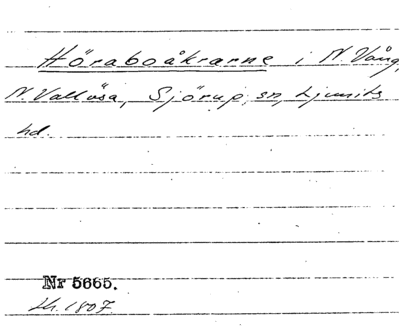 Höraboåkranne i N. Vång,
N. Vallösa, Sjörup sn, Ljunits
hd.
Nr 5665.
sk. 1807